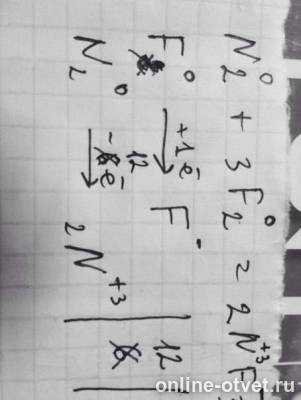 N₂⁰ + 3F₂⁰ = 2N⁺³F
F⁰ +1ē → F⁻ | 12
N₂⁰ -ē 12 → 2N⁺³
online-otvet.ru